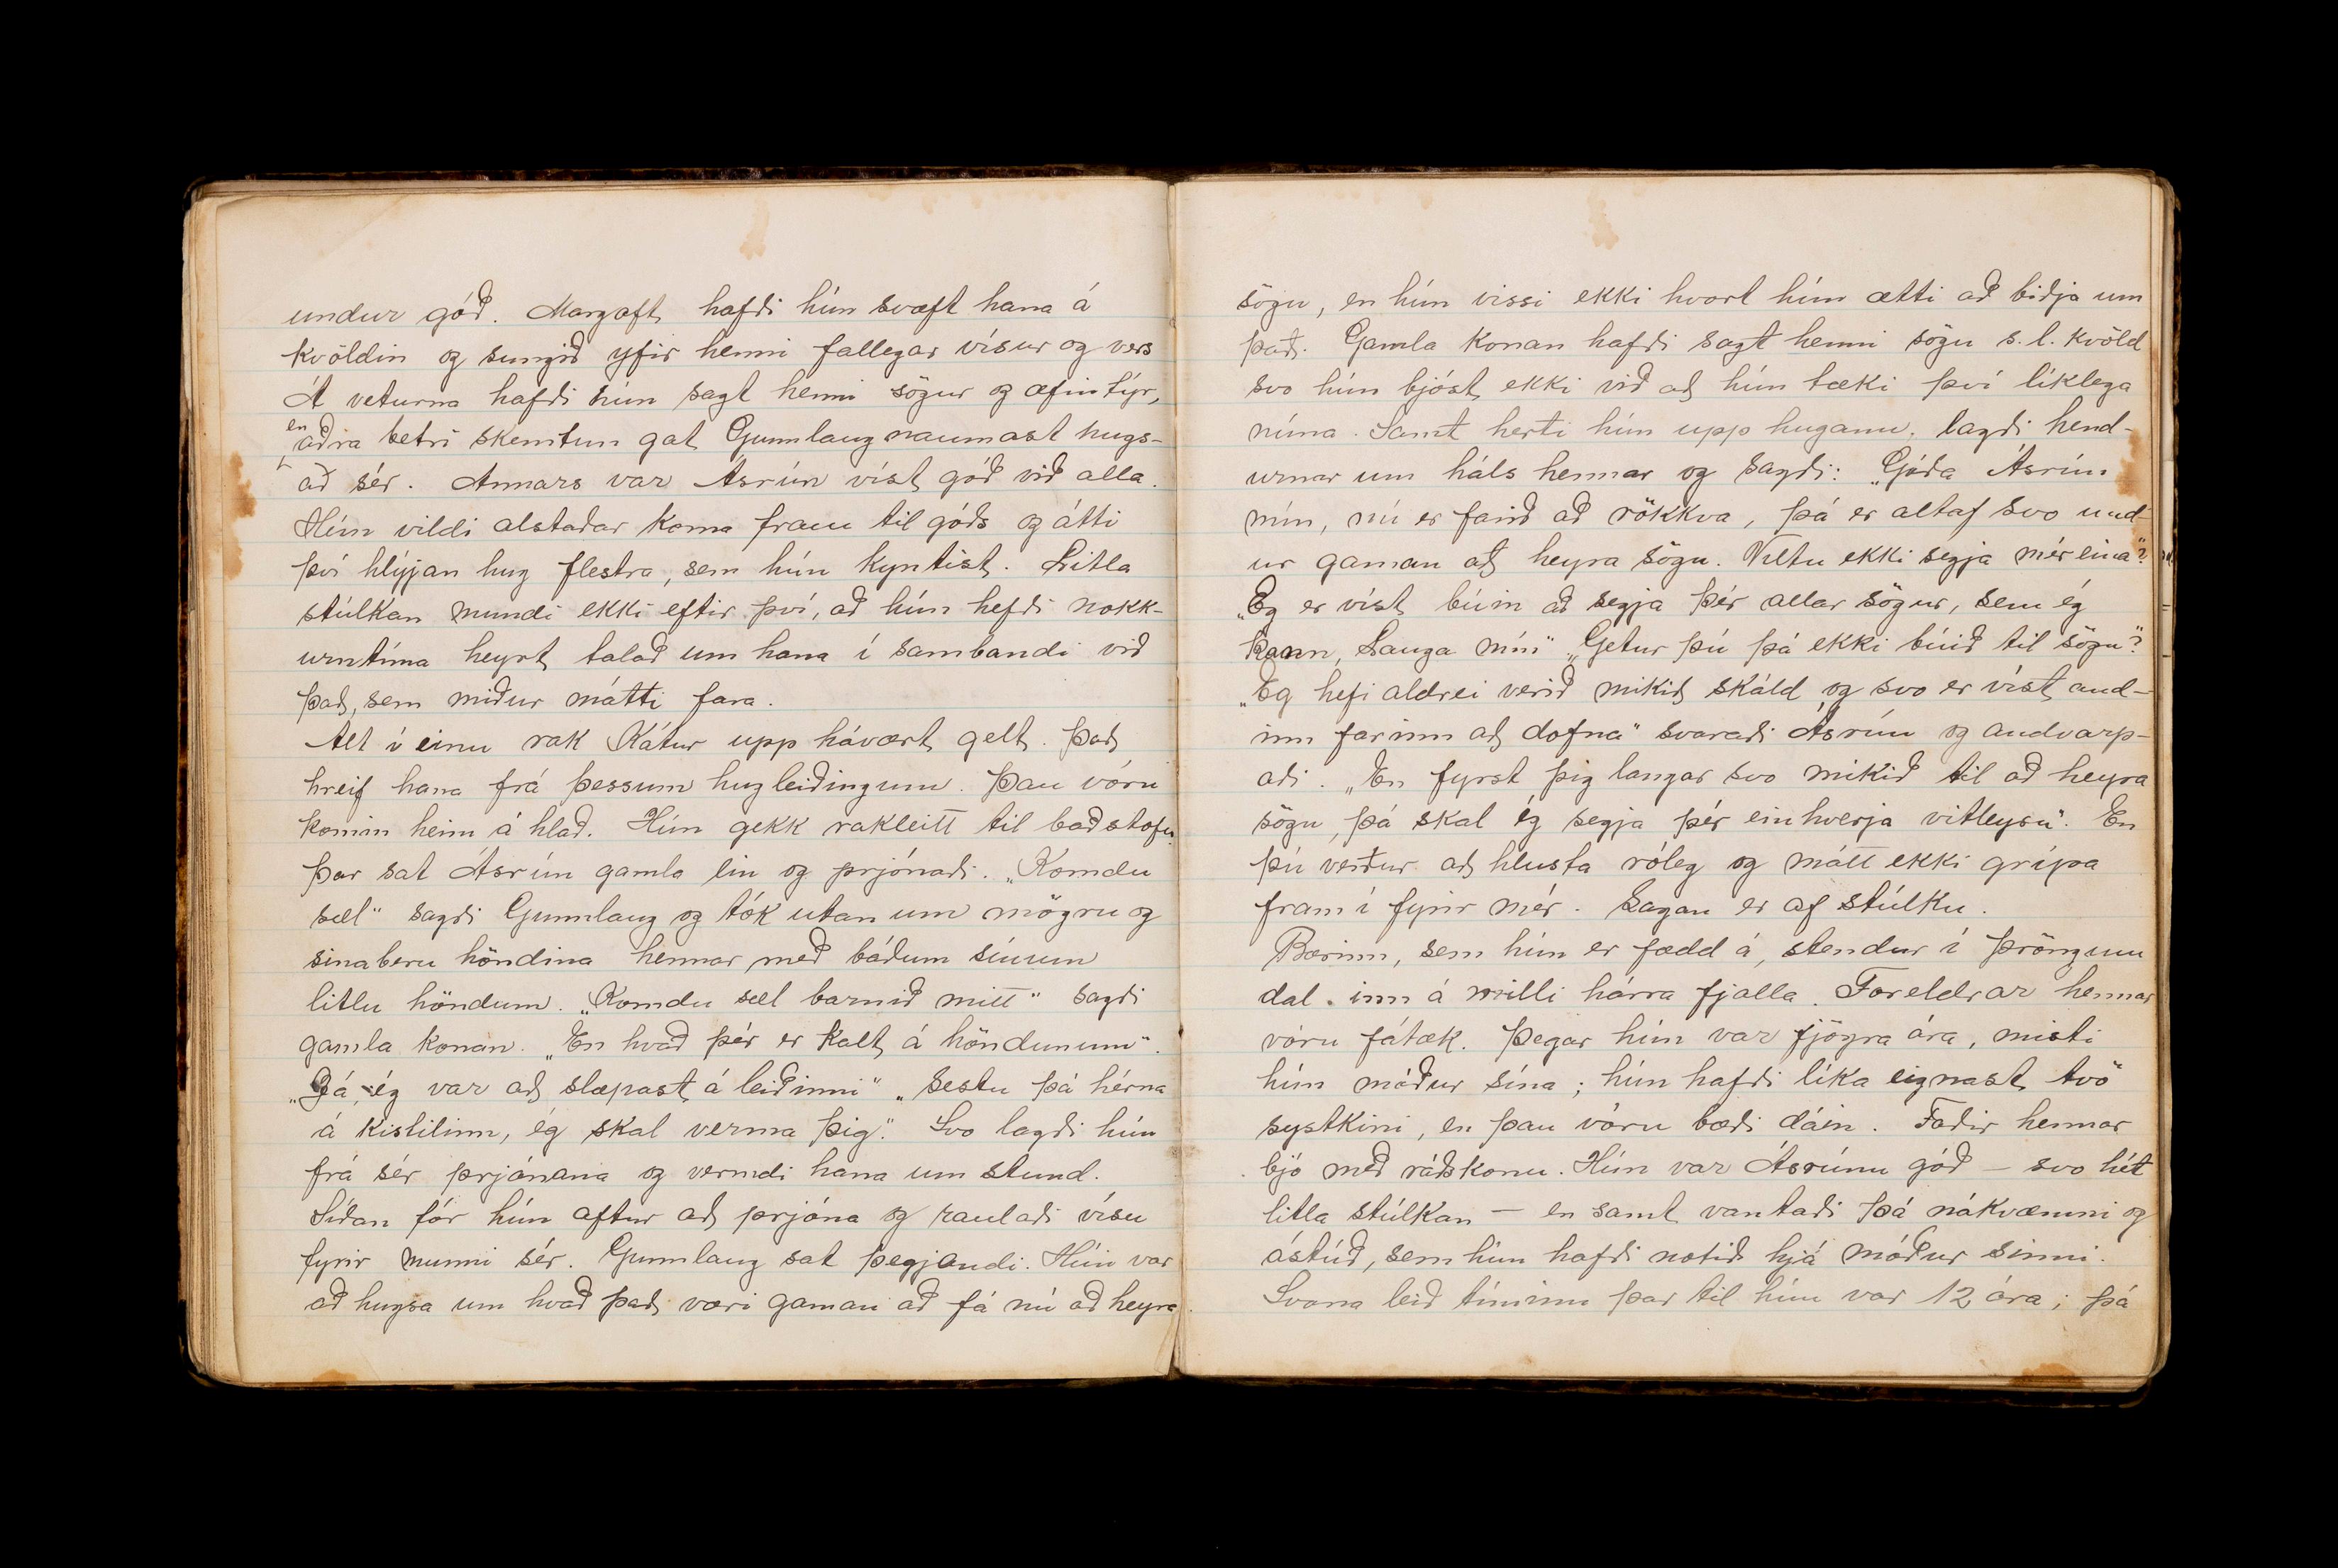 undur góð. Margoft hafði hún svæft hana á
kvöldin og sungið yfir henni fallegar vísur og vers
Á veturna hafði hún sagt henni sögur og æfintýr,
en
aðra betri skemtun gat Gunnlaug naumast hugs-
að sér. Annars var Ásrún víst góð við alla.
Hún vildi alstaðar koma fram til góðs og átti
því hlýjan hug flestra, sem hún kyntist. Litla
stúlkan mundi ekki eftir því, að hún hefði nokk-
urntíma heyrt talað um hana í sambandi við
það, sem miður mátti fara.
Alt í einu rak Kátur upp hávært gelt. Það
hreif hana frá þessum hugleiðingum. Þau vóru
komin heim á hlað. Hún gekk rakleitt til baðstofu.
Þar sat Ásrún gamla ein og prjónaði. „Komdu
sæl" sagði Gunnlaug og tók utan um mögru og
sinaberu höndina hennar með báðum sínum
litlu höndum. „Komdu sæl barnið mitt" sagði
gamla konan. „En hvað þér er kalt á höndunum".
„Já, ég var að slæpast á leiðinni" „Sestu þá hérna
á kistilinn, ég skal verma þig". Svo lagði hún
frá sér prjónana og vermdi hana um stund.
Síðan fór hún aftur að prjóna og raulaði vísu
fyrir munni sér. Gunnlaug sat þegjandi. Hún var
að hugsa um hvað það væri gaman að fá nú að heyra
sögu, en hún vissi ekki hvort hún ætti að biðja um
það. Gamla konan hafði sagt henni sögu s.l. kvöld
svo hún bjóst ekki við að hún tæki því líklega
núna. Samt herti hún upp hugann, lagði hend-
urnar um háls hennar og sagði: „Góða Ásrún
mín, nú er farið að rökkva, þá er altaf svo und-
ur gaman að heyra sögu. Viltu ekki segja mér eina"?
„Ég er víst búin að segja þér allar sögur, sem ég
kann, Lauga mín" „Getur þú þá ekki búið til sögu"?
„Ég hefi aldrei verið mikið skáld, og svo er víst and-
inn farinn að dofna" svaraði Ásrún og andvarp-
aði. „En fyrst þig langar svo mikið til að heyra
sögu, þá skal ég segja þér einhverja vitleysu". En
þú verður að hlusta róleg og mátt ekki grípa
fram í fyrir mér. Sagan er af stúlku.
Bærinn, sem hún er fædd á, stendur í þröngum
dal inn á milli hárra fjalla. Foreldrar hennar
vóru fátæk. Þegar hún var fjögra ára, misti
hún móður sína; hún hafði líka eignast tvö
systkini, en þau vóru bæði dáin. Faðir hennar
bjó með ráðskonu. Hún var Ásrúnu góð – svo hét
litla stúlkan – en samt vantaði þá nákvæmni og
ástúð, sem hún hafði notið hjá móður sinni.
Svona leið tíminn þar til hún var 12 ára; þá